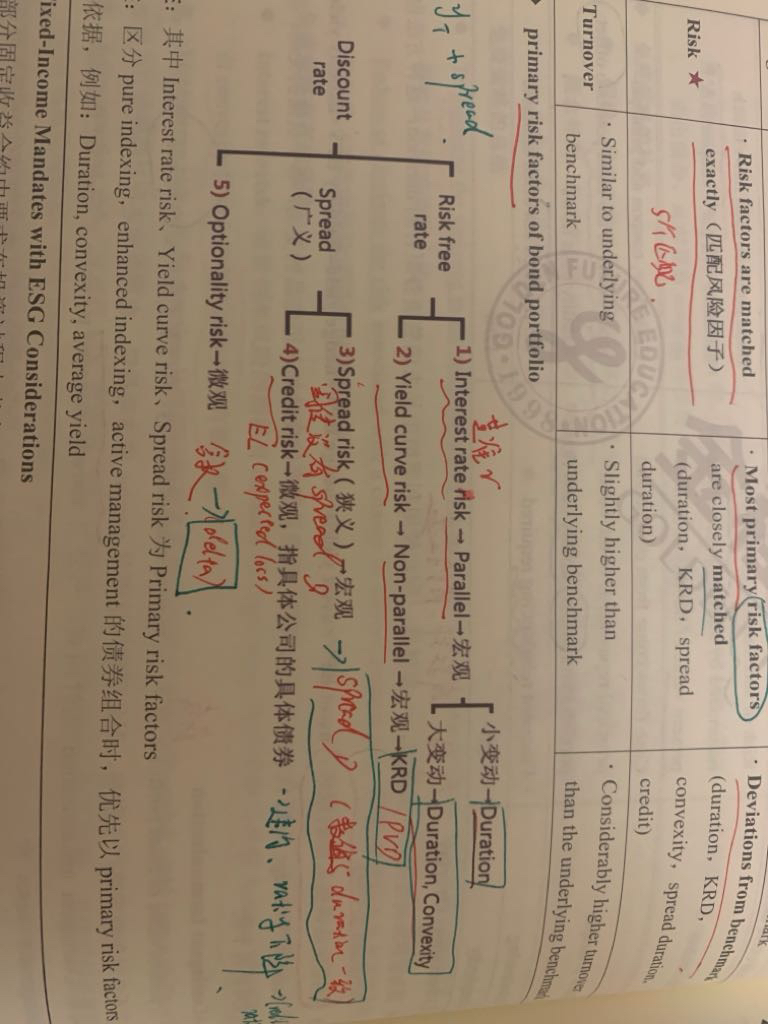 Risk ★
· Risk factors are matched
exactly（匹配风险因子）
· Most primary risk factors
are closely matched
(duration, KRD, spread
duration)
· Deviations from benchmark
(duration, KRD,
convexity, spread duration,
credit)
Turnover
· Similar to underlying
benchmark
· Slightly higher than
underlying benchmark
· Considerably higher turnover
than the underlying benchmark
primary risk factors of bond portfolio
+ spread
Discount
rate
Risk free
rate
基准 r
1) Interest rate risk → Parallel→宏观
小变动→Duration
大变动→Duration, Convexity
2) Yield curve risk → Non-parallel →宏观→KRD / PVD
Spread
（广义）
3)Spread risk（狭义）→宏观 → spread D
duration 一致
spread
4)Credit risk→微观，指具体公司的具体债券
EL (expected loss)
5) Optionality risk→微观
含权 → delta
：其中 Interest rate risk、Yield curve risk、Spread risk 为 Primary risk factors
：区分 pure indexing，enhanced indexing，active management 的债券组合时，优先以 primary risk factors
依据，例如：Duration, convexity, average yield
ixed-Income Mandates with ESG Considerations